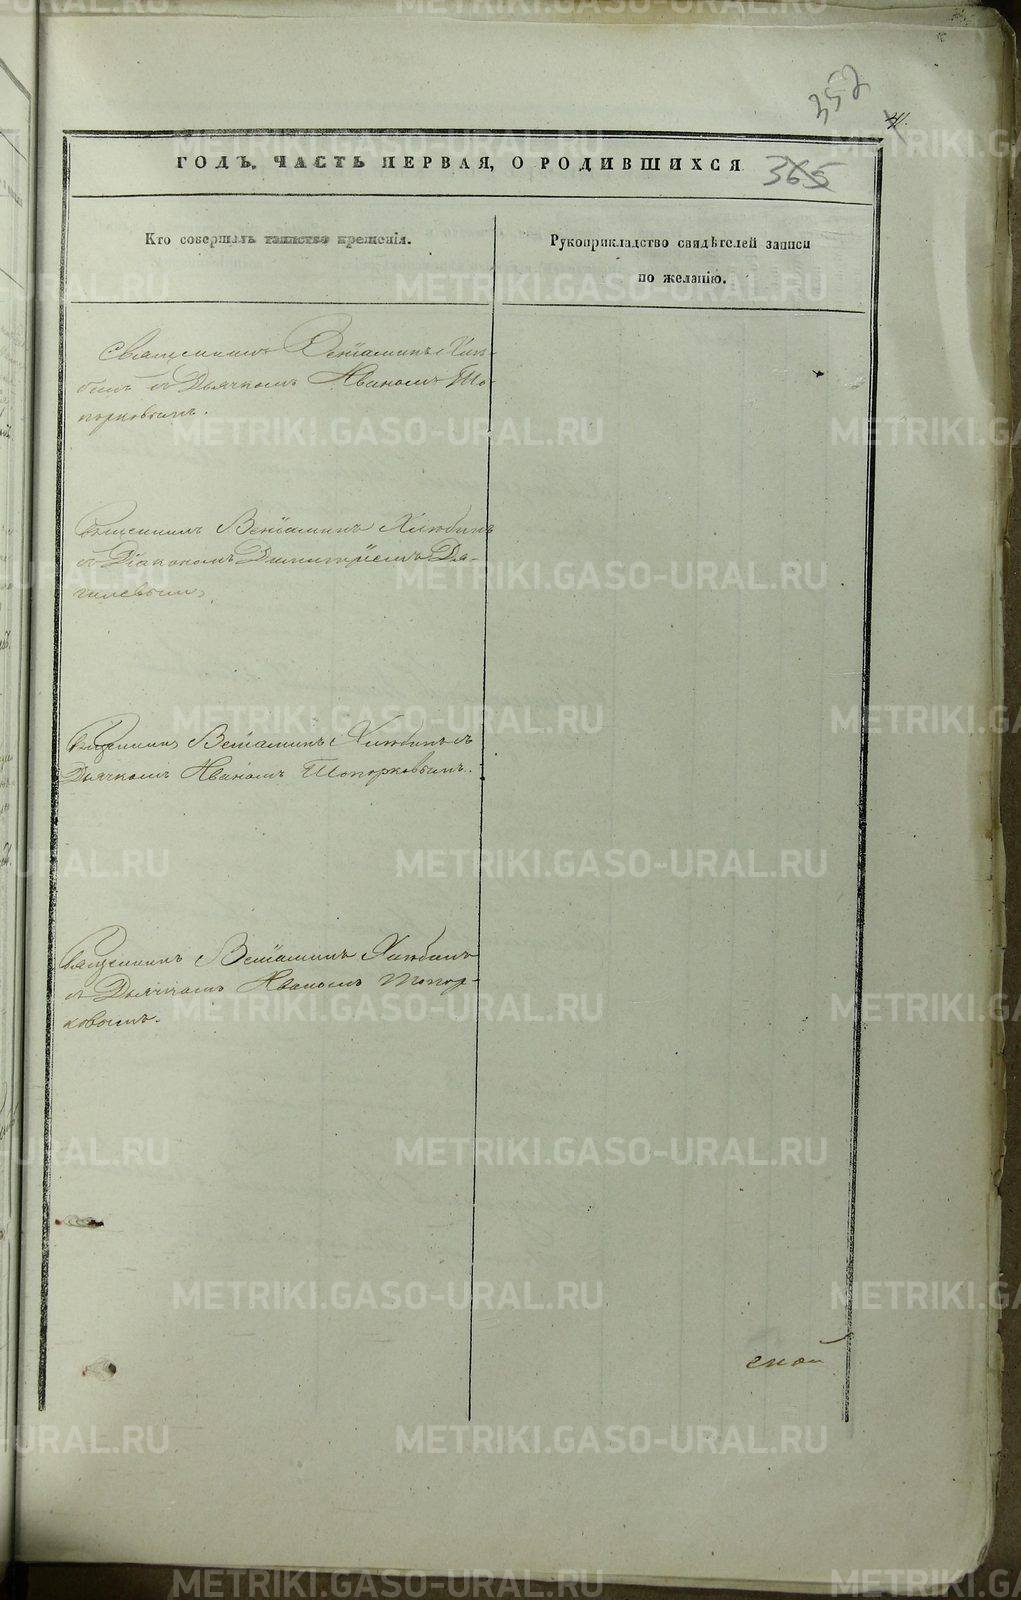 352
41.
ГОДЪ. ЧАСТЬ ПЕРВАЯ, О РОДИВШИХСЯ 365
Кто совершалъ таинство крещенія.
Рукоприкладство свидѣтелей записи
по желанію.
Священникъ Веніаминъ Хлю-
бинъ съ Дьячкомъ Иваномъ То-
порковымъ.
Священникъ Веніаминъ Хлюбинъ
съ Діакономъ Димитріемъ Дя-
гилевымъ
Священникъ Веніаминъ Хлюбинъ съ
Дьячкомъ Иваномъ Топорковымъ.
Священникъ Веніаминъ Хлюбинъ
съ Дьячкомъ Иваномъ Топор-
ковымъ.
ской
METRIKI.GASO-URAL.RU